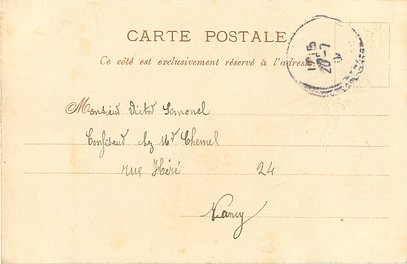 CARTE POSTALE
Ce côté est exclusivement réservé à l'adresse
Monsieur Victor Simonel
chez Mr Chemel
rue Héré 24
Nancy